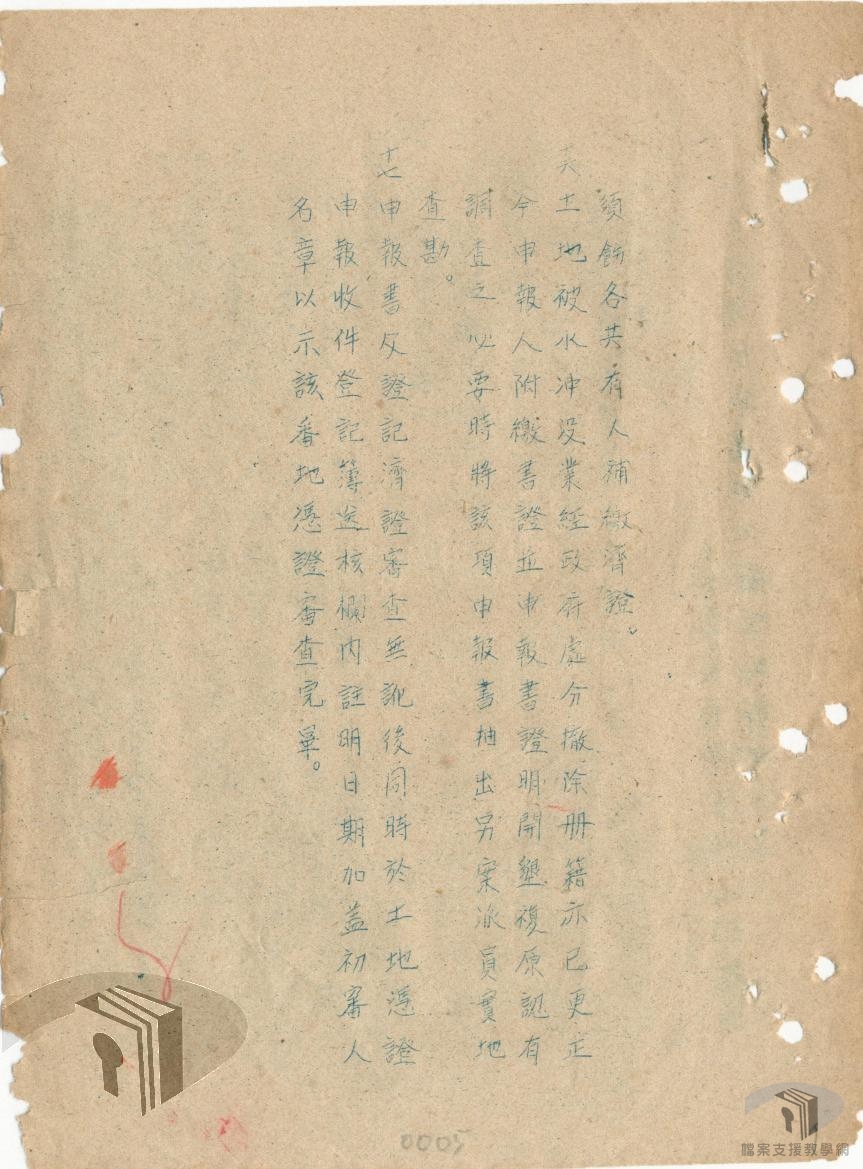 須飭各共有人補繳濟證。
土地被水冲没業經政府處分撤除册籍亦已更正
今申報人附繳書證並申報書證明開墾復原認有
調查之必要時將該項申報書抽出另案派員實地
查勘。
十七申報書反證記濟證審查無訛後同時於土地憑證
申報收件登記簿送核欄内註明日期加蓋初審人
名章以示該番地憑證審查完畢。
0005
檔案支援教學網